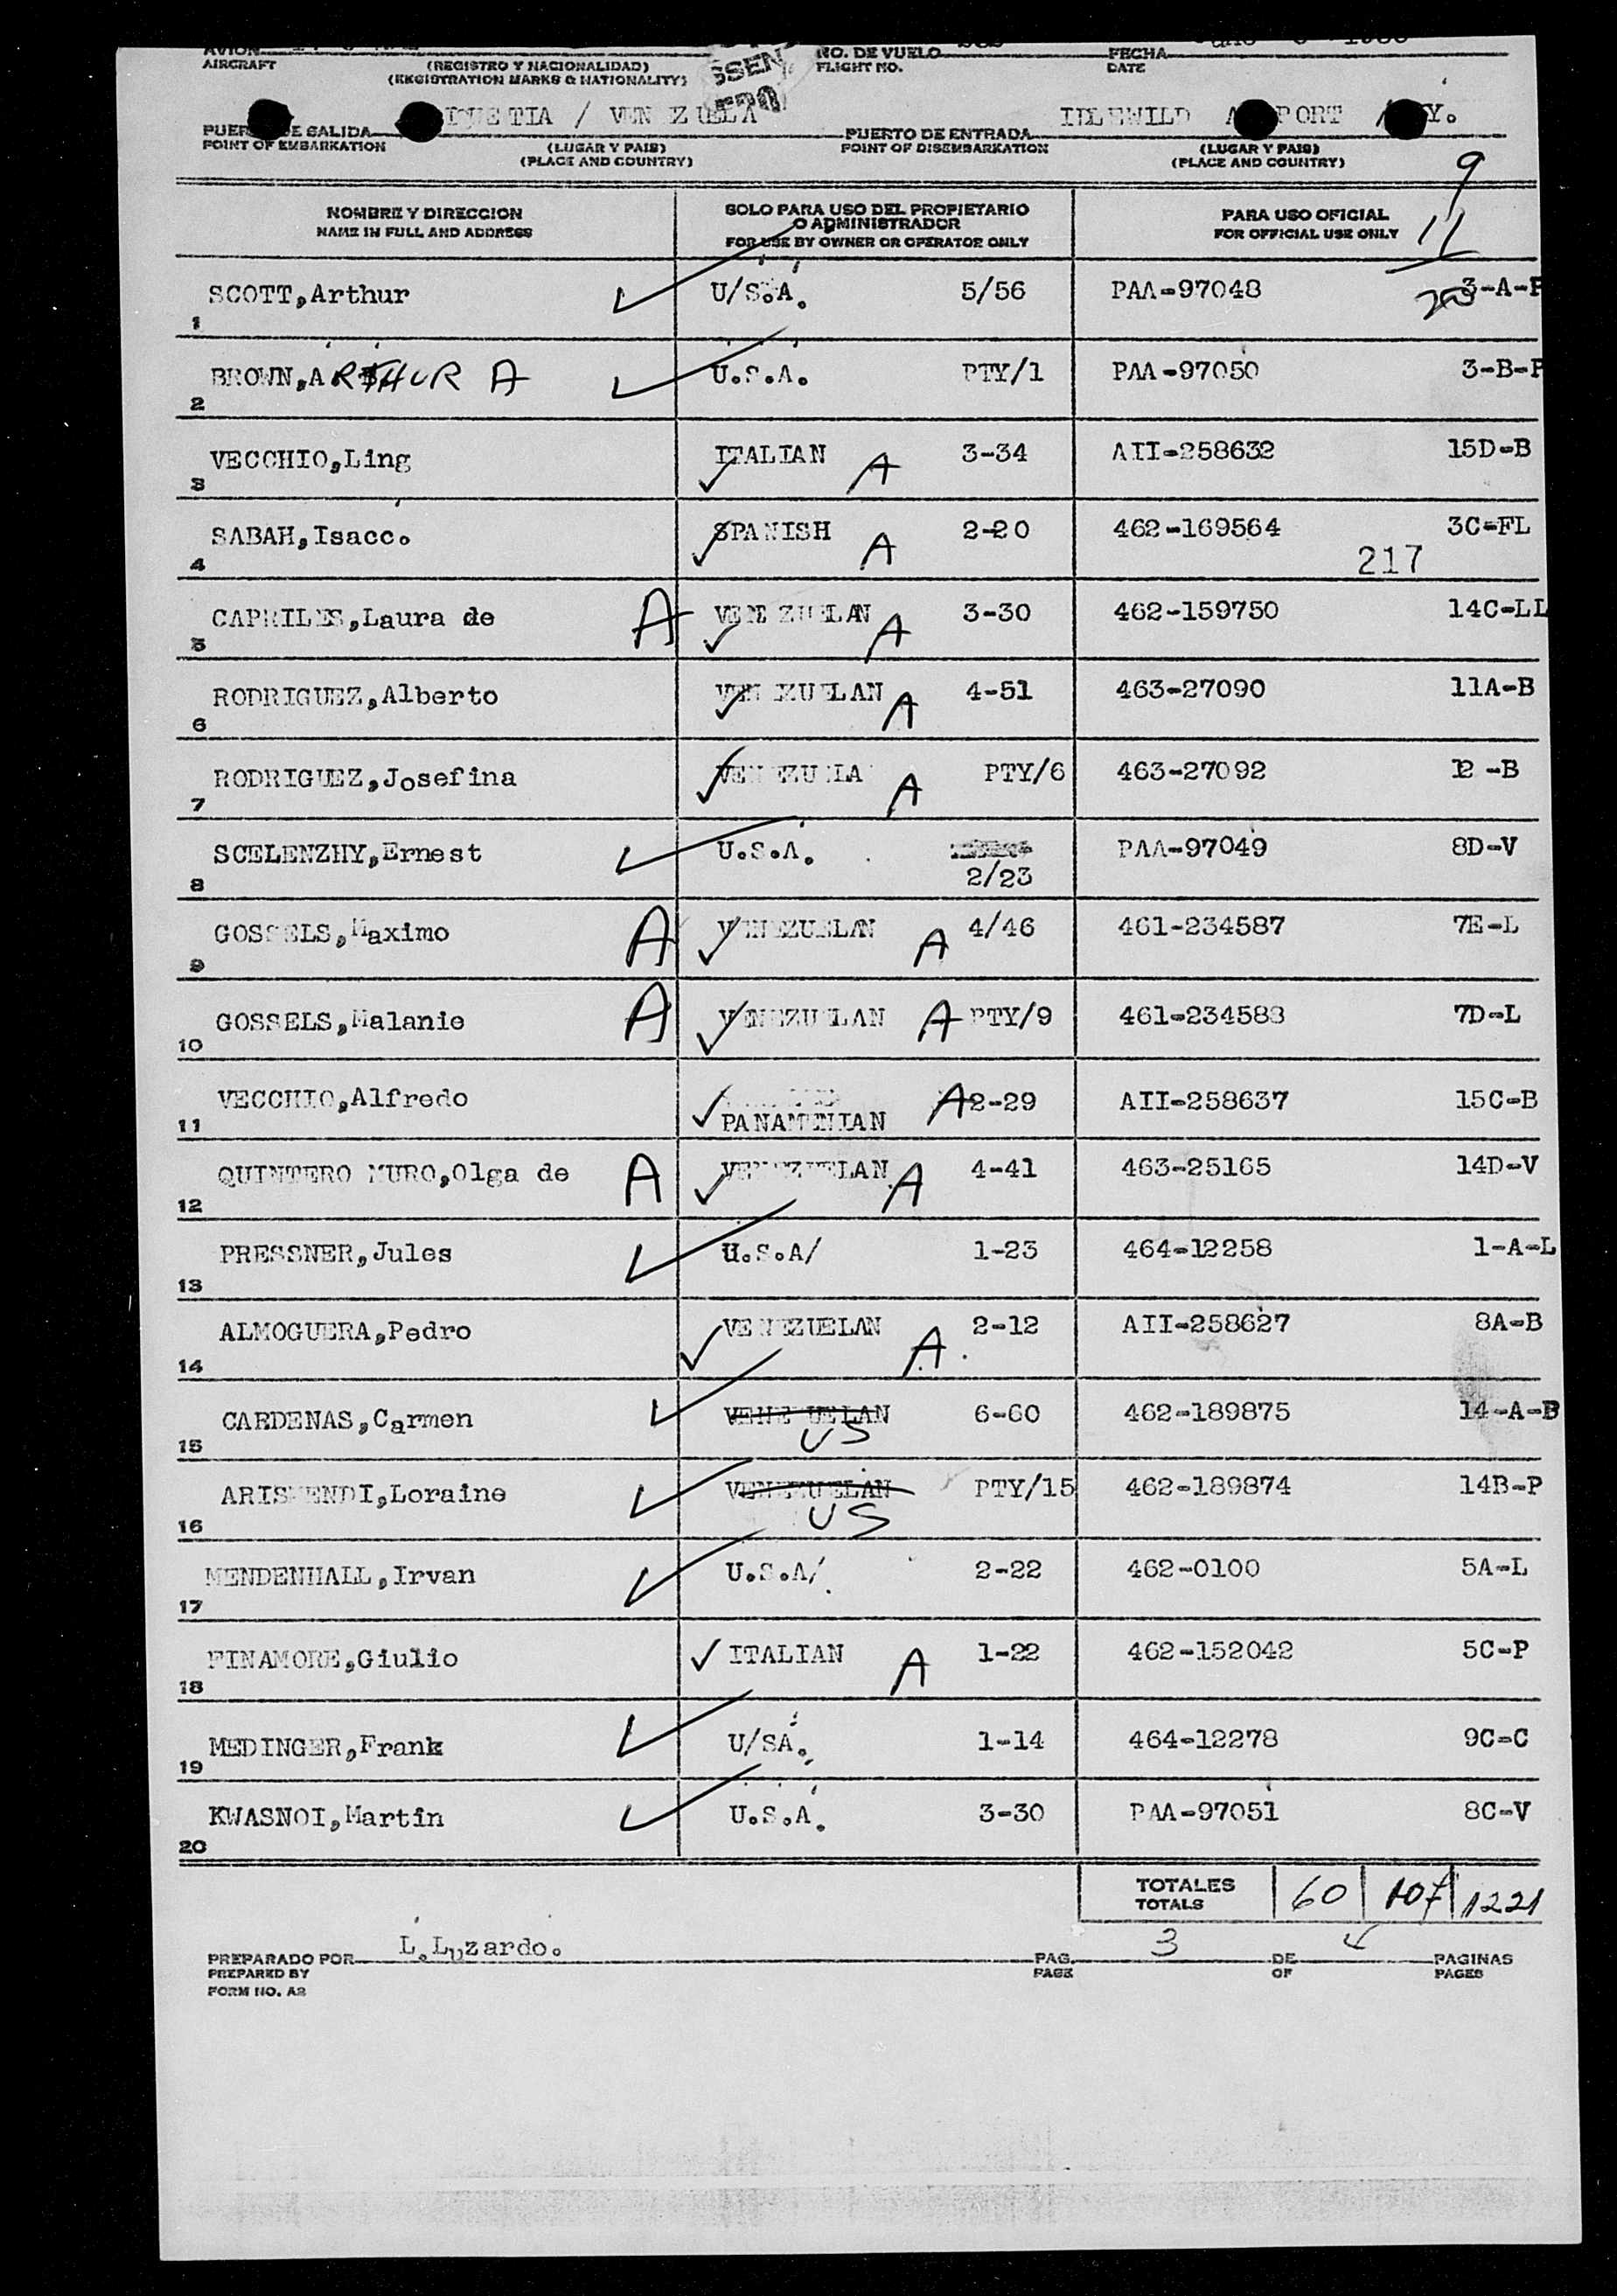 AVION
AIRCRAFT
(REGISTRO Y NACIONALIDAD)
(REGISTRATION MARKS & NATIONALITY)
NO. DE VUELO
FLIGHT NO.
FECHA
DATE
IDLEWILD
PUERTO DE ENTRADA
POINT OF EMBARKATION
(LUGAR Y PAIS)
(PLACE AND COUNTRY)
/ VENEZUELA
POINT OF DISEMBARKATION
(LUGAR Y PAIS)
(PLACE AND COUNTRY)
NOMBRE Y DIRECCION
NAME IN FULL AND ADDRESS
SOLO PARA USO DEL PROPIETARIO
O ADMINISTRADOR
FOR USE BY OWNER OR OPERATOR ONLY
PARA USO OFICIAL
FOR OFFICIAL USE ONLY
9
11
20
1 SCOTT,Arthur U/S.A. 5/56 PAA-97048 3-A-P
2 BROWN,ARTHUR A U.S.A. PTY/1 PAA-97050 3-B-P
3 VECCHIO,Ling ITALIAN A 3-34 AII-258632 15D-B
4 SABAH,Isacc. SPANISH A 2-20 462-169564 3C-FL
217
5 CAPRILES,Laura de A VENEZUELAN A 3-30 462-159750 14C-LL
6 RODRIGUEZ,Alberto VENEZUELAN A 4-51 463-27090 11A-B
7 RODRIGUEZ,Josefina VENEZUELA A PTY/6 463-27092 12 -B
8 SCELENZHY,Ernest U.S.A. 2/23 PAA-97049 8D-V
9 GOSSELS,Maximo A VENEZUELAN A 4/46 461-234587 7E-L
10 GOSSELS,Malanie A VENEZUELAN A PTY/9 461-234588 7D-L
11 VECCHIO,Alfredo PANAMENIAN A 2-29 AII-258637 15C-B
12 QUINTERO MURO,Olga de A VENEZUELAN A 4-41 463-25165 14D-V
13 PRESSNER,Jules U.S.A/ 1-23 464-12258 1-A-L
14 ALMOGUERA,Pedro VENEZUELAN A 2-12 AII-258627 8A-B
15 CARDENAS,Carmen VENEZUELAN US 6-60 462-189875 14-A-B
16 ARISMENDI,Loraine VENEZUELAN US PTY/15 462-189874 14B-P
17 MENDENHALL,Irvan U.S.A/ 2-22 462-0100 5A-L
18 FINAMORE,Giulio ITALIAN A 1-22 462-152042 5C-P
19 MEDINGER,Frank U/SA. 1-14 464-12278 9C-C
20 KWASNOI,Martin U.S.A. 3-30 PAA-97051 8C-V
TOTALES
TOTALS
60 107 1221
PREPARADO POR L.Luzardo.
PREPARED BY
FORM NO. A2
PAG. 3 DE PAGINAS
PAGE OF PAGES